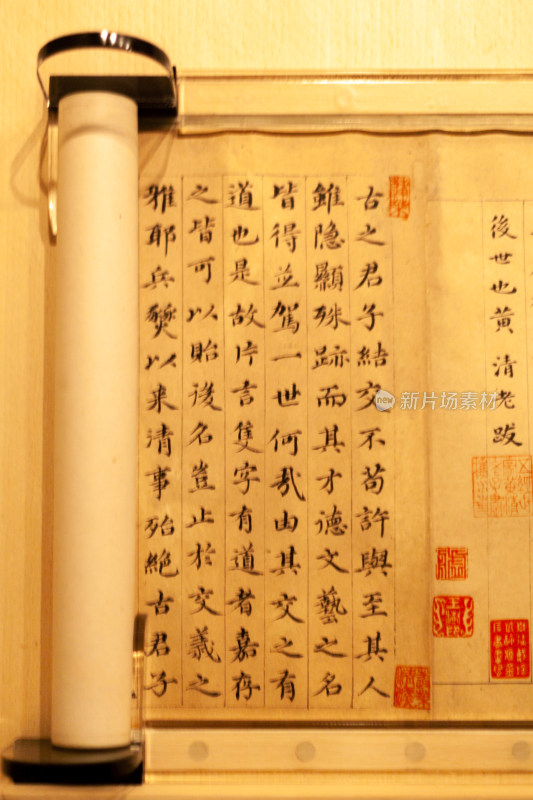 後世也黄清老跋
古之君子結交不苟許與至其人
雖隐顯殊跡而其才德文藝之名
皆得並駕一世何哉由其交之有
道也是故片言隻字有道者嘉存
之皆可以貽後名豈止於交義之
雅耶兵燹以来清事殆絶古君子
新片场素材